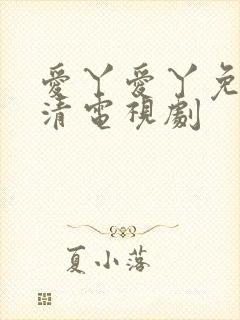 愛丫愛丫免
清電視劇
夏小落